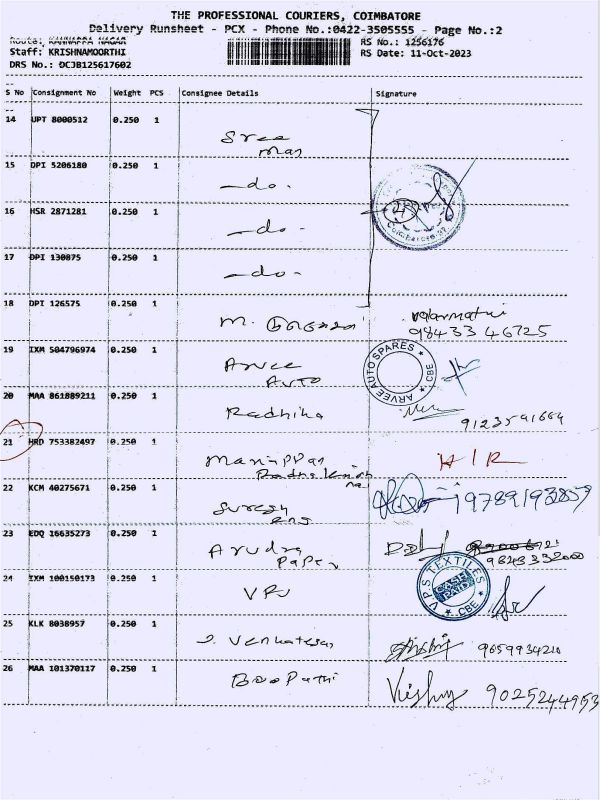 THE PROFESSIONAL COURIERS, COIMBATORE
Delivery Runsheet - PCX - Phone No.:0422-3505555 - Page No.:2
Route: KANNAPPA NAGAR RS No.: 1256176
Staff: KRISHNAMOORTHI RS Date: 11-Oct-2023
DRS No.: OCJB125617602
S No Consignment No Weight PCS Consignee Details Signature
14 UPT 8000512 0.250 1 Sree
mas
15 DPI 5206180 0.250 1 -do-
16 HSR 2871281 0.250 1 -do-
17 DPI 130875 0.250 1 -do-
18 DPI 126575 0.250 1 M. valarmathi
98433 46725
19 IXM 504796974 0.250 1 Arvee
Auto
ARVEE AUTO SPARES CBE
20 MAA 861889211 0.250 1 Radhika
9123591664
21 HRD 753382497 0.250 1 H/R
22 KCM 40275671 0.250 1 Suresh
ens
23 EDQ 16635273 0.250 1 Arudra
Paper
9843332000
24 IXM 100150173 0.250 1 VPS
V.P.S TEXTILES CBE
25 KLK 8038957 0.250 1 S. Venkatesan 9659934210
26 MAA 101370117 0.250 1 Boopathi Vishnu 9025244953